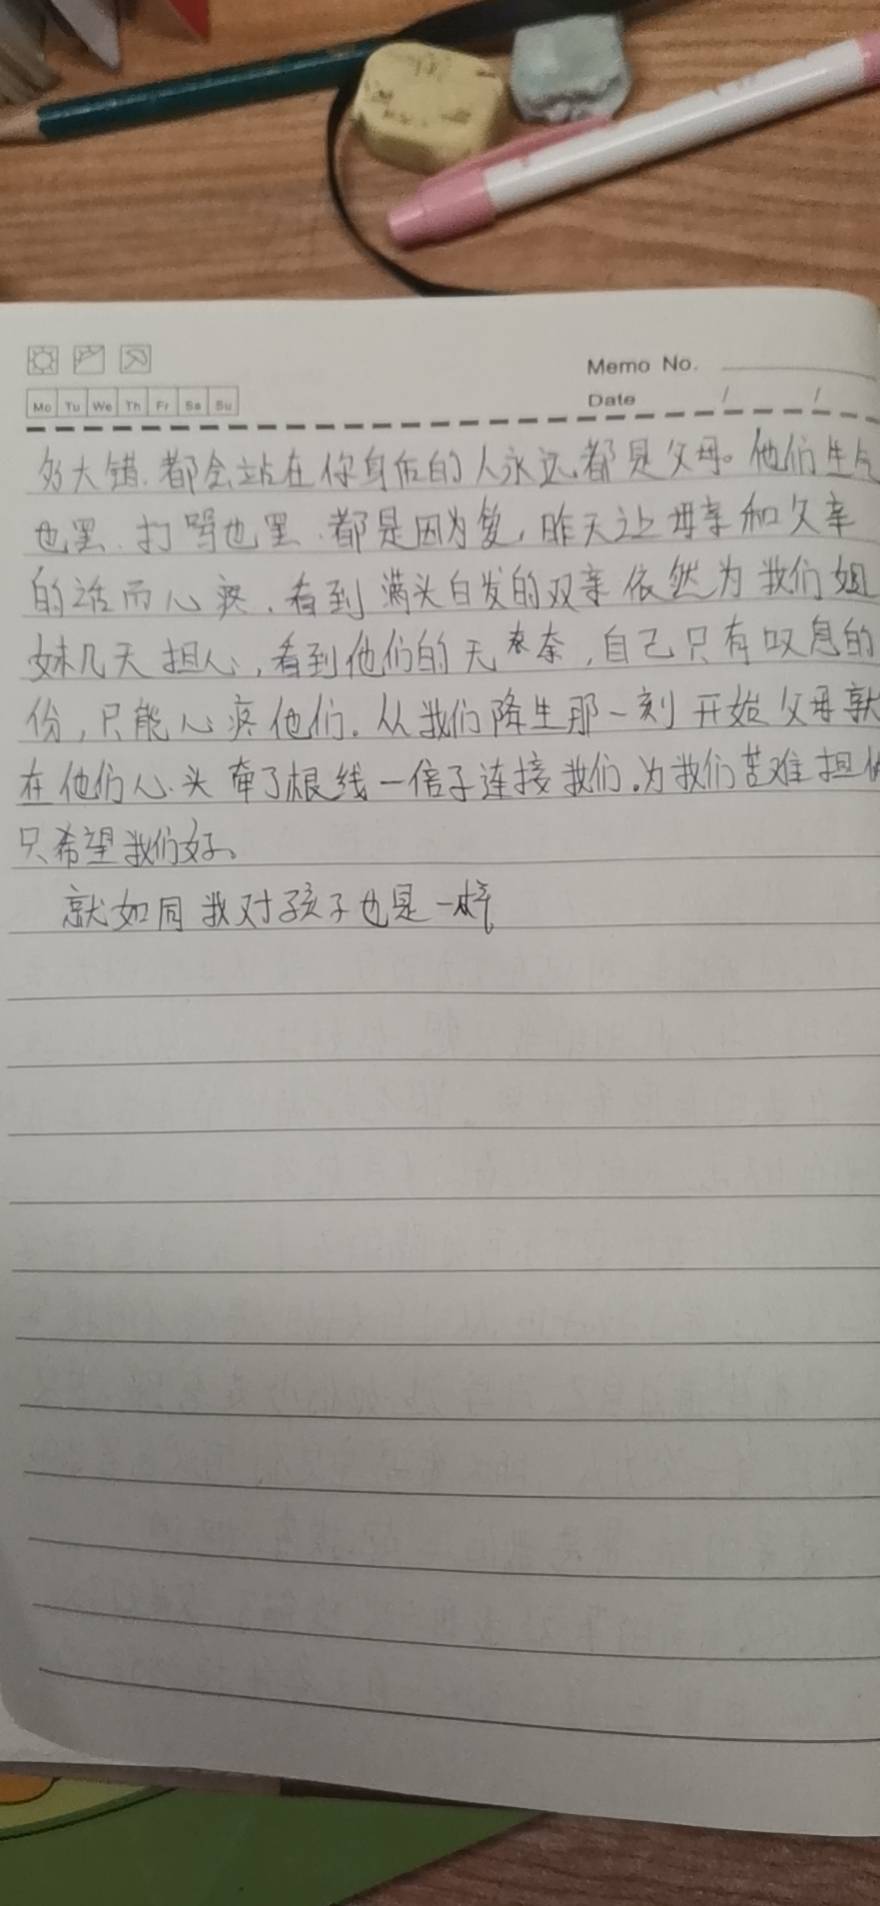 Memo No.
Mo Tu We Th Fr Sa Su
Date / /
多大错、都会站在你身后的人永远都是父母。他们生气
也罢、打骂也罢、都是因为爱,昨天让母亲和父亲
的话而心疼、看到满头白发的双亲依然为我们姐
妹几天担心,看到他们的无奈,自己只有叹息的
份,只能心疼他们.从我们降生那一刻开始父母就
在他们心头牵了根线一倍子连接我们.为我们苦难担
只希望我们好。
就如同我对孩子也是一样